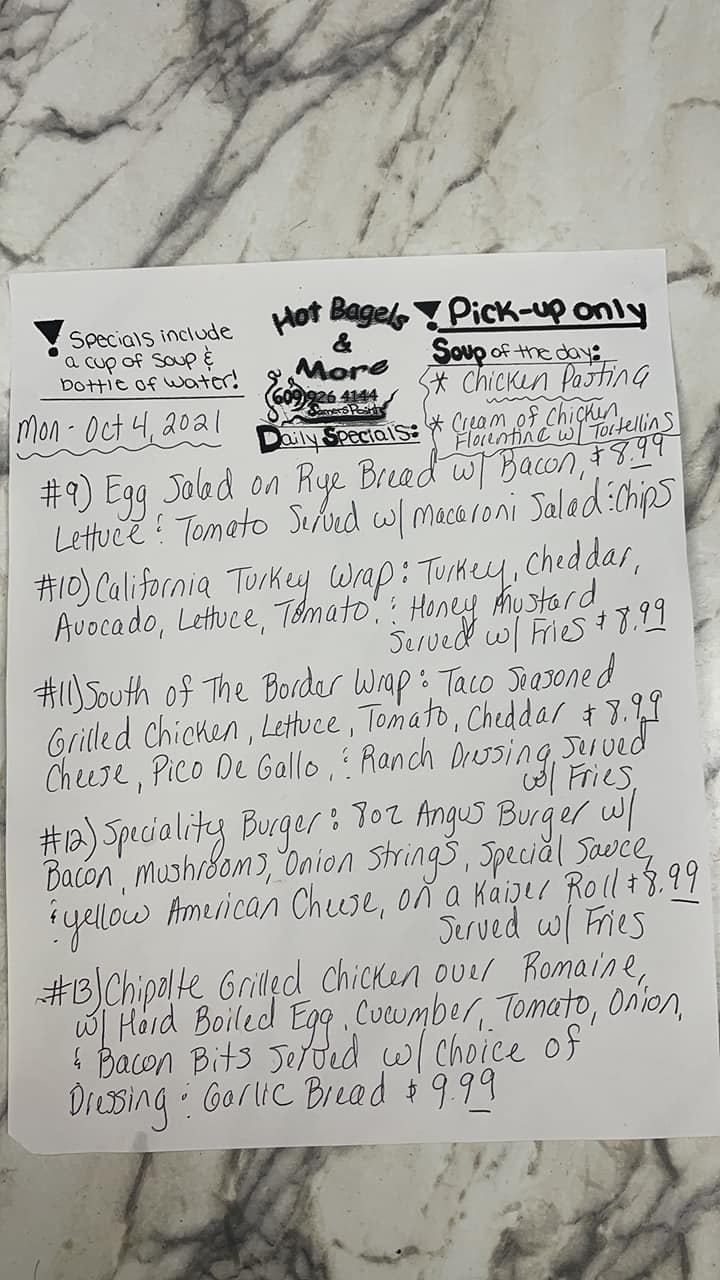 Specials include
a cup of soup &
bottle of water!
Mon - Oct 4, 2021
Hot Bagels
&
More
(609)926 4144
Somers Point
Daily Specials:
Pick-up only
Soup of the day:
* Chicken Pasting
* Cream of Chicken
Florentine w/ Tortellins
#9) Egg Salad on Rye Bread w/ Bacon, $8.99
Lettuce & Tomato Served w/ Macaroni Salad & Chips
#10) California Turkey Wrap: Turkey, Cheddar,
Avocado, Lettuce, Tomato, & Honey Mustard
Served w/ Fries $8.99
#11) South of The Border Wrap: Taco Seasoned
Grilled Chicken, Lettuce, Tomato, Cheddar $8.99
Cheese, Pico De Gallo, & Ranch Dressing Served
w/ Fries
#12) Speciality Burger: 8oz Angus Burger w/
Bacon, Mushrooms, Onion Strings, Special Sauce,
& yellow American Cheese, on a Kaiser Roll $8.99
Served w/ Fries
#13) Chipolte Grilled Chicken over Romaine,
w/ Hard Boiled Egg, Cucumber, Tomato, Onion,
& Bacon Bits Served w/ Choice of
Dressing & Garlic Bread $9.99